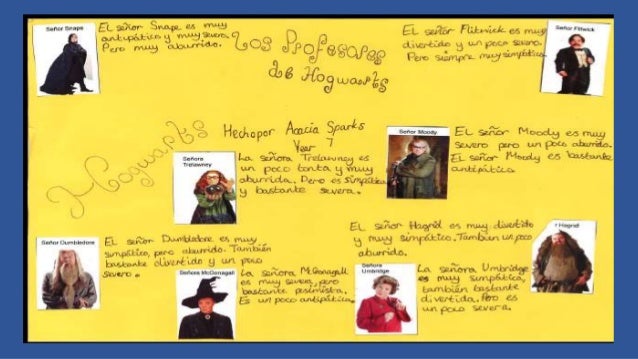 Señor Snape
EL señor Snape es muy
antipático y muy severo.
Pero muy aburrido.
Los Profesores
de Hogwarts
EL señor Flitwick es muy
divertido y un poco severo.
Pero siempre muy simpático.
Señor Flitwick
Hogwarts
Hechopor Acacia Sparks
Year 7
Señora
Trelawney
La señora Trelawney es
un poco tonta y muy
aburrida. Pero es simpática
y bastante severa.
Señor Moody
EL señor Moody es muy
severo pero un poco aburrido.
EL señor Moody es bastante
antipático
Señor Dumbledore
EL señor Dumbledore es muy
simpático, pero aburrido. También
bastante divertido y un poco
severo.
Señora McGonagall
La señora McGonagall
es muy severa, pero
bastante pesimista.
Es un poco antipática.
EL señor Hagrid es muy divertido
y muy simpático. Tambien un poco
aburrido.
r Hagrid
Señora
Umbridge
La señora Umbridge
es muy simpática,
también bastante
divertida. Pero es
un poco severa.